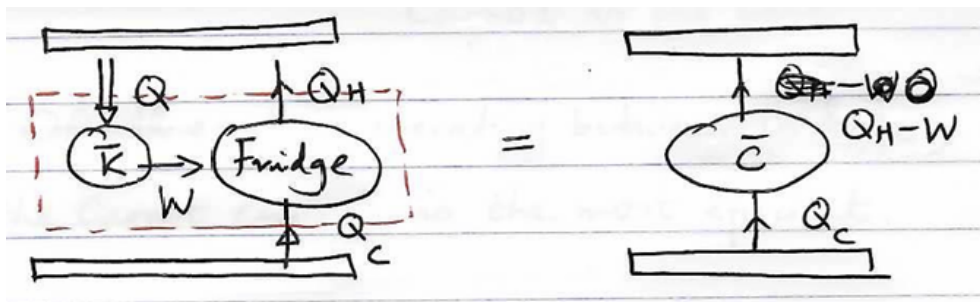 Q
Q_H
K̄
Fridge
W
Q_C
=
Q_H - W
C̄
Q_C